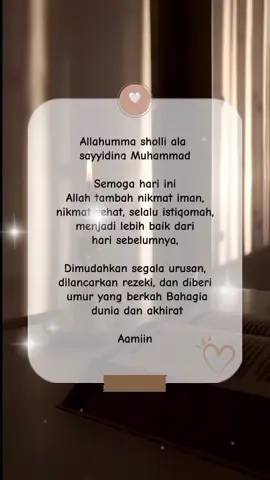 Allahumma sholli ala
sayyidina Muhammad
Semoga hari ini
Allah tambah nikmat iman,
nikmat sehat, selalu istiqomah,
menjadi lebih baik dari
hari sebelumnya,
Dimudahkan segala urusan,
dilancarkan rezeki, dan diberi
umur yang berkah Bahagia
dunia dan akhirat
Aamiin